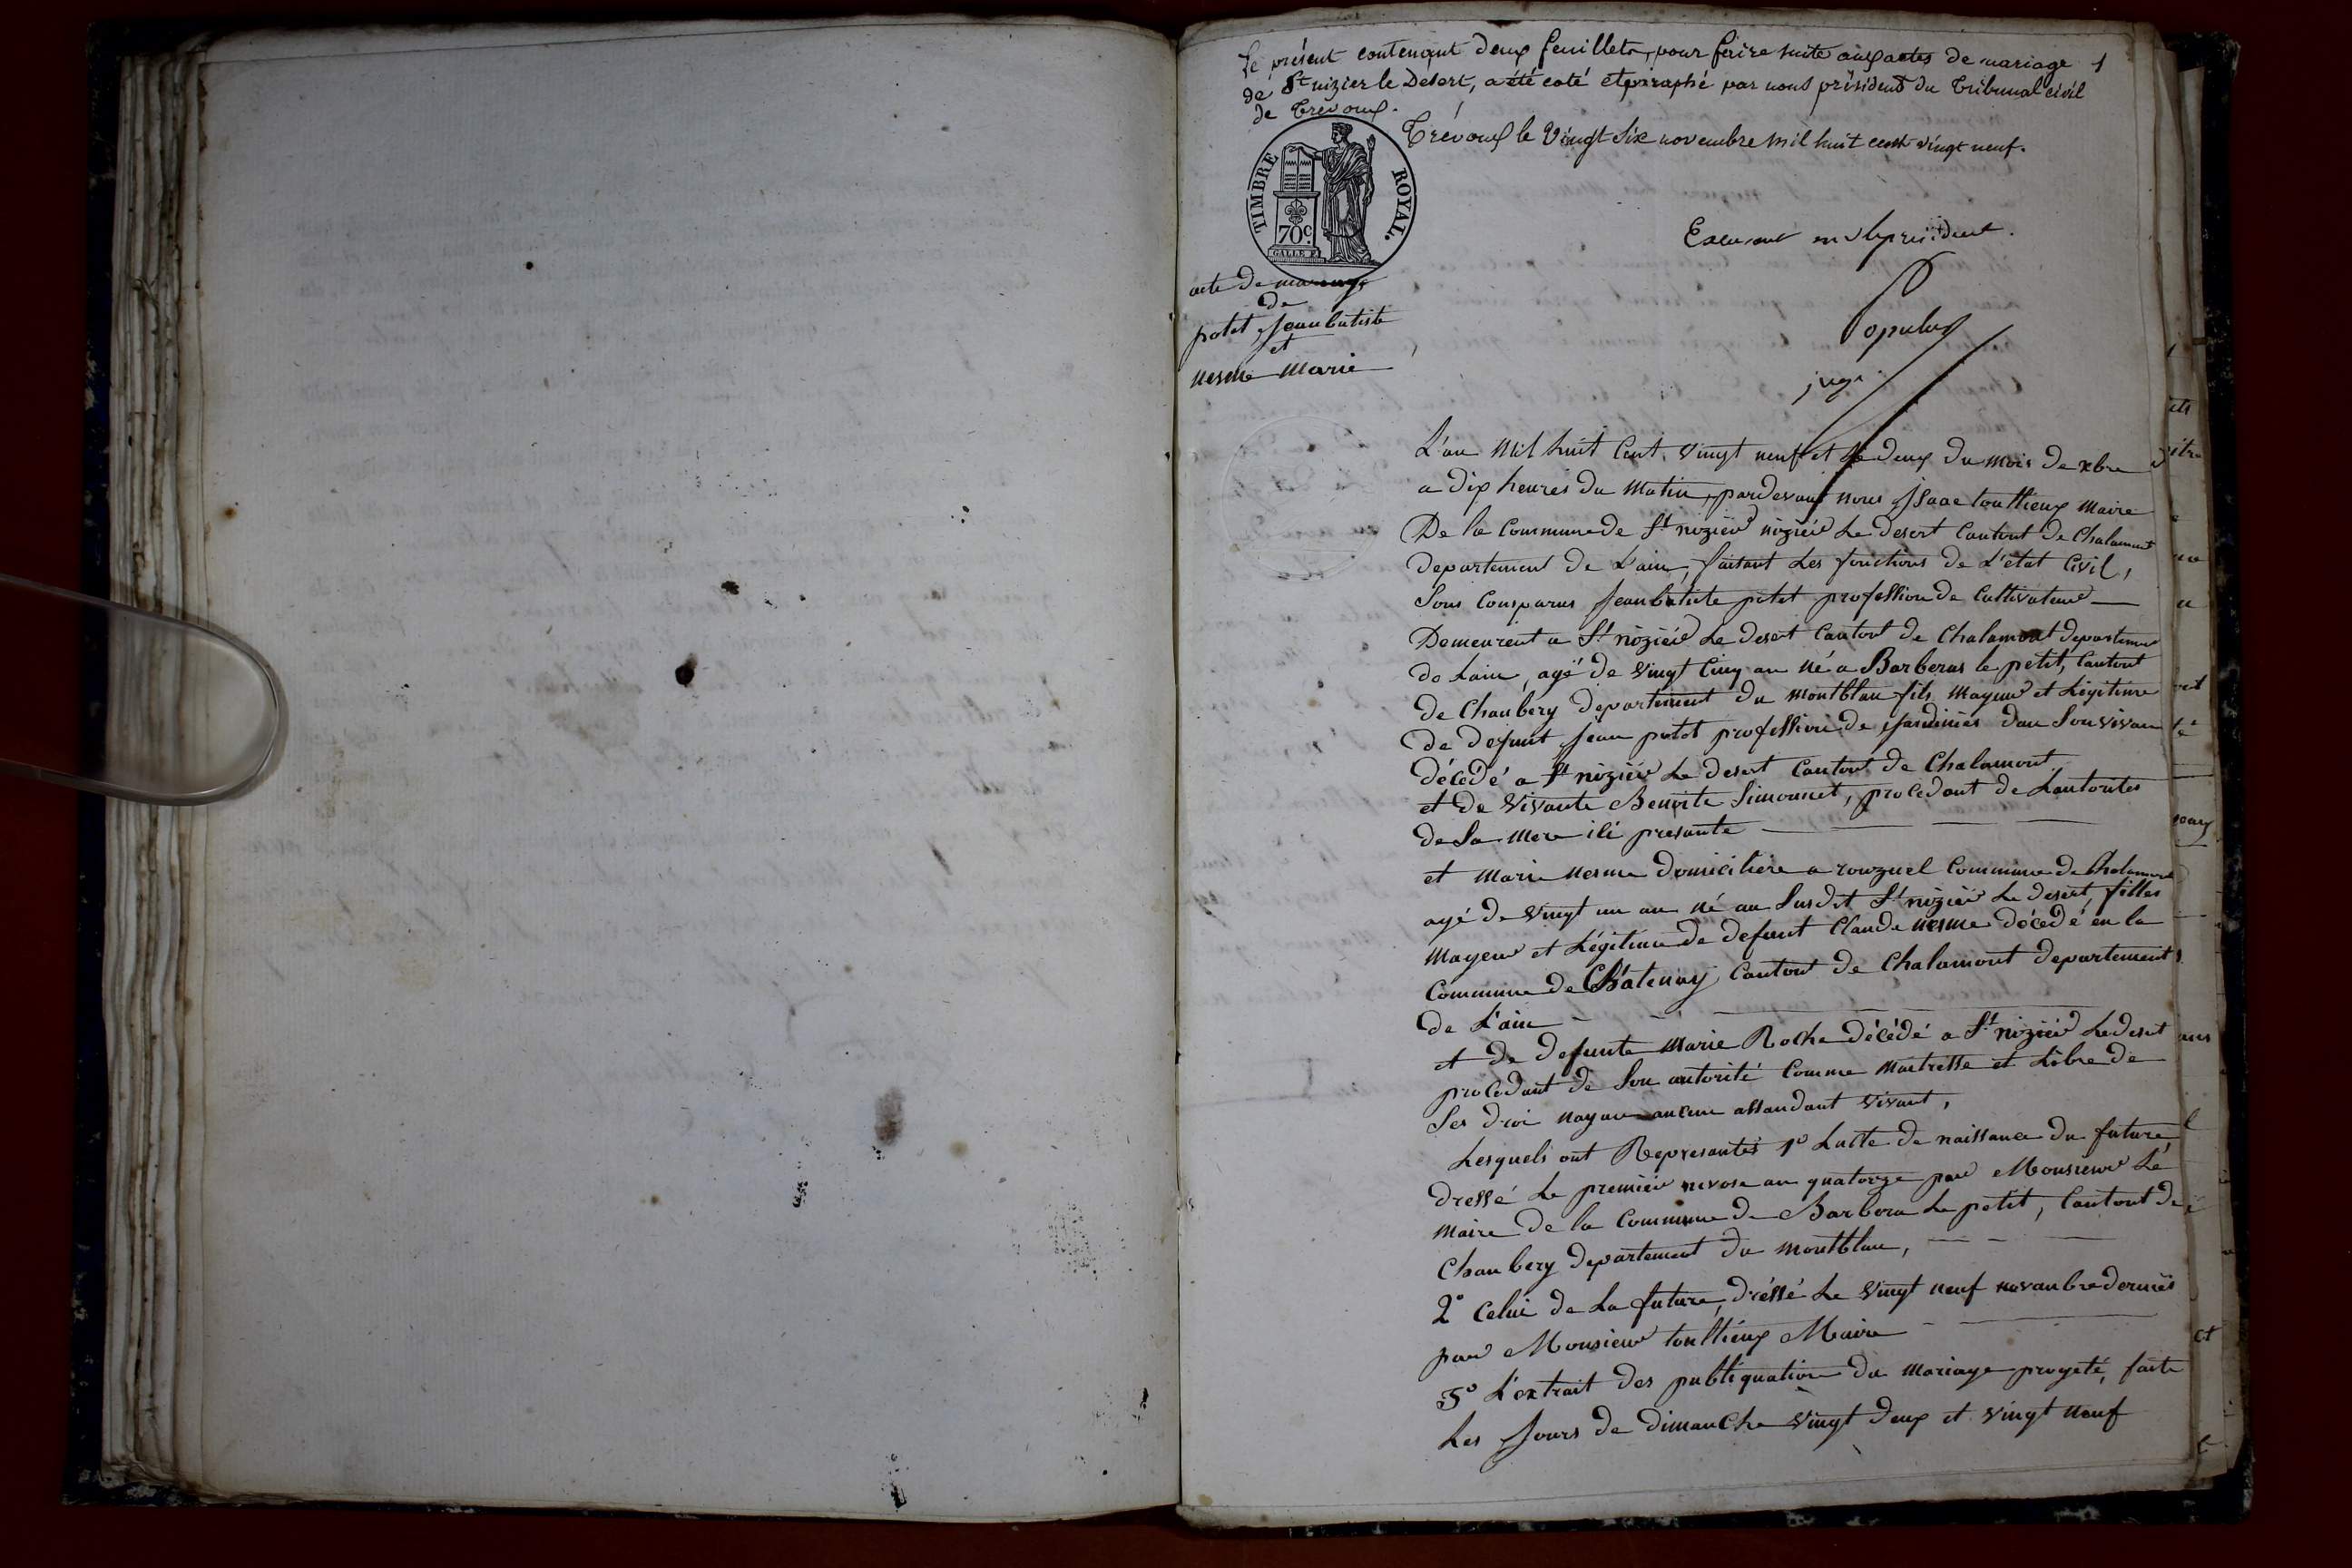 Le présent contenant deux feuillets, pour faire suite aux actes de mariage 1
de St nizier le Desert, a été coté et paraphé par nous président du Tribunal civil
de Trévoux.
Trévoux le Vingt Six novembre mil huit cent vingt neuf.
TIMBRE ROYAL.
70c
GALLE F.
le président.
Populus
juge
acte de mariage
de
potet, Jean batiste
et
nesme Marie
L'an Mil huit Cent Vingt neuf et Le deux du mois de xbre
a dix heures du Matin, pardevant nous Isaac touttieux Maire
De la Commune de St niziér niziér Le desert Cantont de Chalamont
departement de L'ain, faisant Les fonctions de L'etat Civil,
Sons Comparus Jean batiste potet profession de Cultivateur
Demeurent a St niziér Le desert Cantont de Chalamont departement
de Lain, agé de Vingt Cinq an Né a Barberas le petit, Cantont
de Chanbery departement du Montblan fils Mayeur et Légitime
de defunt Jean potet profession de Jardiniés dan Son vivan
décédé a St niziér Le desert Cantont de Chalamont
et de Vivante Benoite Simonnet, procedant de Lautorites
de Sa Mere ili presante
et Marie Nesme domiciliere a rouzuel Commune de Chalamont
agé de Vingt un an Né au Susdit St niziér Le desert, filles
Mayeur et Légitime de defunt Claude Nesme décédé en la
Commune de Châtenay Cantont de Chalamont departement
de L'ain
et de defunte Marie Roche décédé a St niziér Le desert
procedant de Son autorité Comme Maitresse et Libre de
Ses droi Nayan aucun assandant Vivant,
Lesquels ont Represantés 1o Lacte de naissance du future,
dressé Le premiér nivose an quatorze par Monsieur Le
Maire de la Commune de Barbera Le petit, Cantont de
Chanbery departement du Montblan,
2o Celui de La future, dréssé Le Vingt neuf novanbre derniés
par Monsieur touttieux Maire
3o L'extrait des publiquation du Mariage progeté, faite
Les Jours de dimanche Vingt deux et Vingt neuf